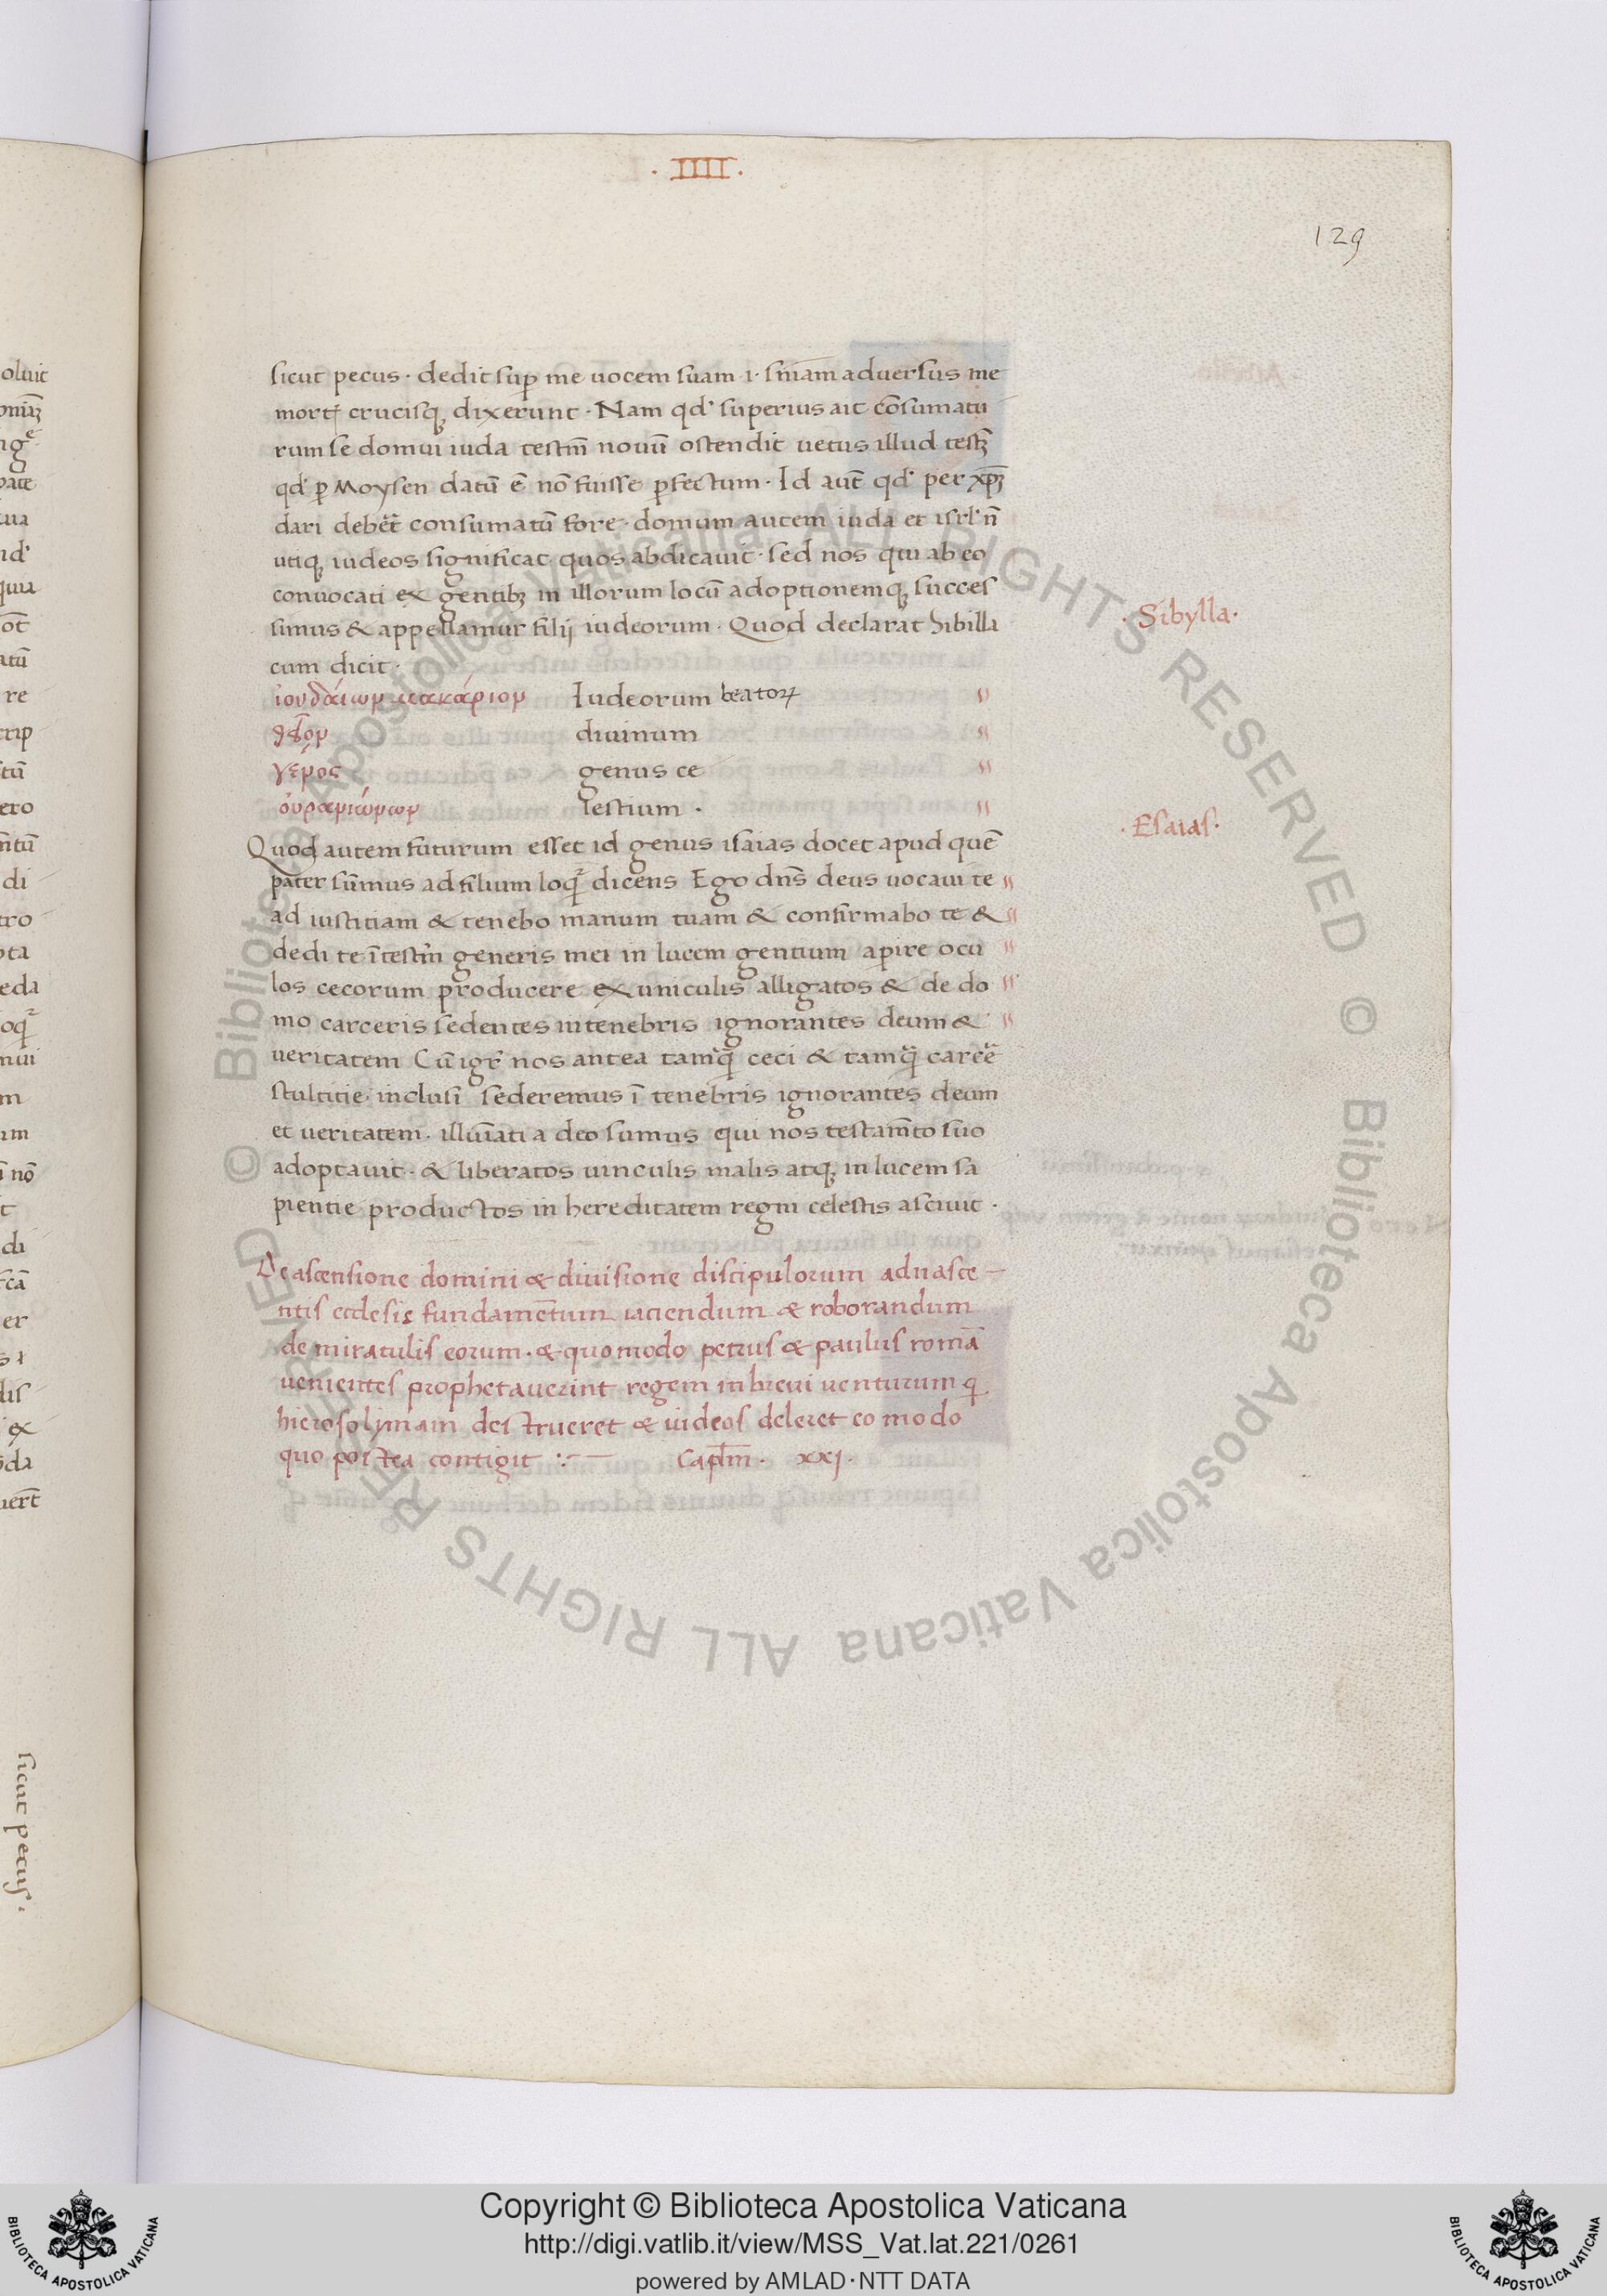 . IIII .
129
sicut pecus · dedit sup̱ me uocem suam ·i· sn̄iam aduersus me
mortꝭ crucisqꝫ dixerunt · Nam qd' superius ait cōsumatu
rum se domui iuda testm̄ nouū ostendit uetus illud testꝫ
qd' ꝑ Moysen datū ē nō fuisse ꝑfectum · Id aut̄ qd' per xp̄ꝫ
dari deber̄t consumatū fore · domum autem iuda et isrl' n̄
utiqꝫ iudeos significat quos abdicauit · sed nos qui ab eo
conuocati ex gentibꝫ in illorum locū adoptionemqꝫ succes
simus & appellamur filij iudeorum · Quod declarat Sibilla
· Sibylla ·
cum dicit ·
ἰουδάιων μακάριον Iudeorum beatoꝝ
θεῖον diuinum
γένος genus ce
ὀυρανιώνων lestium ·
Quod autem futurum esset id genus isaias docet apud quē
· Esaias ·
pater sūmus ad filium loqr̄ dicens Ego dn̄s deus uocaui te
ad iustitiam & tenebo manum tuam & confirmabo te &
dedi te ī testm̄ generis mei in lucem gentium aꝑire ocu
los cecorum producere ex uniculis alligatos & de do
mo carceris sedentes in tenebris ignorantes deum &
ueritatem Cū igr̄ nos antea tamq̄ ceci & tamq̄ carcē
stultitie inclusi sederemus ī tenebris ignorantes deum
et ueritatem · illuīati a deo sumus qui nos testam̄to suo
adoptauit · & liberatos uinculis malis atqꝫ in lucem sa
pientie productos in hereditatem regni celestis asciuit ·
De ascensione domini & diuisione discipulorum ad nasce
ntis ecclesie fundamēntum iaciendum & roborandum
de miraculis eorum · & quomodo petrus & paulus romā
uenientes prophetauerint regem in breui uenturum q
hierosolymam destrueret & iudeos deleret eo modo
quo postea contigit :· — Capl̄m · xxj ·
sicut pecus ·
Copyright © Biblioteca Apostolica Vaticana
http://digi.vatlib.it/view/MSS_Vat.lat.221/0261
powered by AMLAD · NTT DATA
BIBLIOTECA APOSTOLICA VATICANA
BIBLIOTECA APOSTOLICA VATICANA
© Biblioteca Apostolica Vaticana ALL RIGHTS RESERVED © Biblioteca Apostolica Vaticana ALL RIGHTS RESERVED